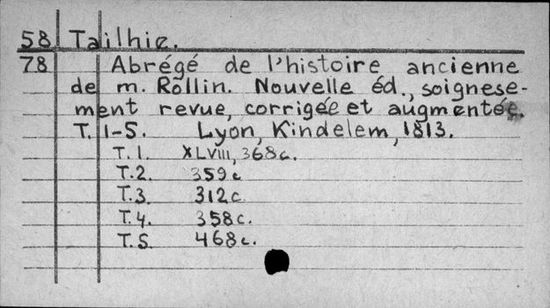 58 Tailhie.
78 Abrégé de l'histoire ancienne
de m. Rollin. Nouvelle éd., soignese-
ment revue, corrigée et augmentée.
T. 1-5. Lyon, Kindelem, 1813.
T. 1. XLVIII, 368c.
T.2. 359c
T.3. 312c
T.4. 358c.
T.5. 468c.